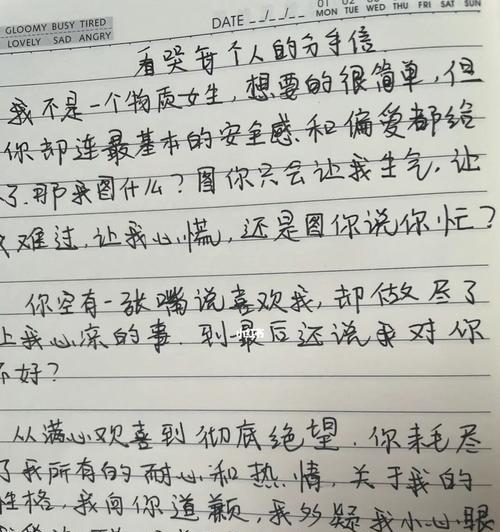 GLOOMY BUSY TIRED
LOVELY SAD ANGRY
DATE _/_/_
01 02
MON TUE WED THU FRI SAT SUN
看哭每个人的分手信
我不是一个物质女生,想要的很简单,但
你却连最基本的安全感和偏爱都给
了.那我图什么?图你只会让我生气,让
难过.让我心慌,还是图你说你忙?
你空有一张嘴说喜欢我,却做尽了
让我心凉的事.到最后还说我对你
不好?
小红书
从满心欢喜到彻底绝望.你耗尽
了我所有的耐心和热情,关于我的
性格,我向你道歉,我多疑我小心眼